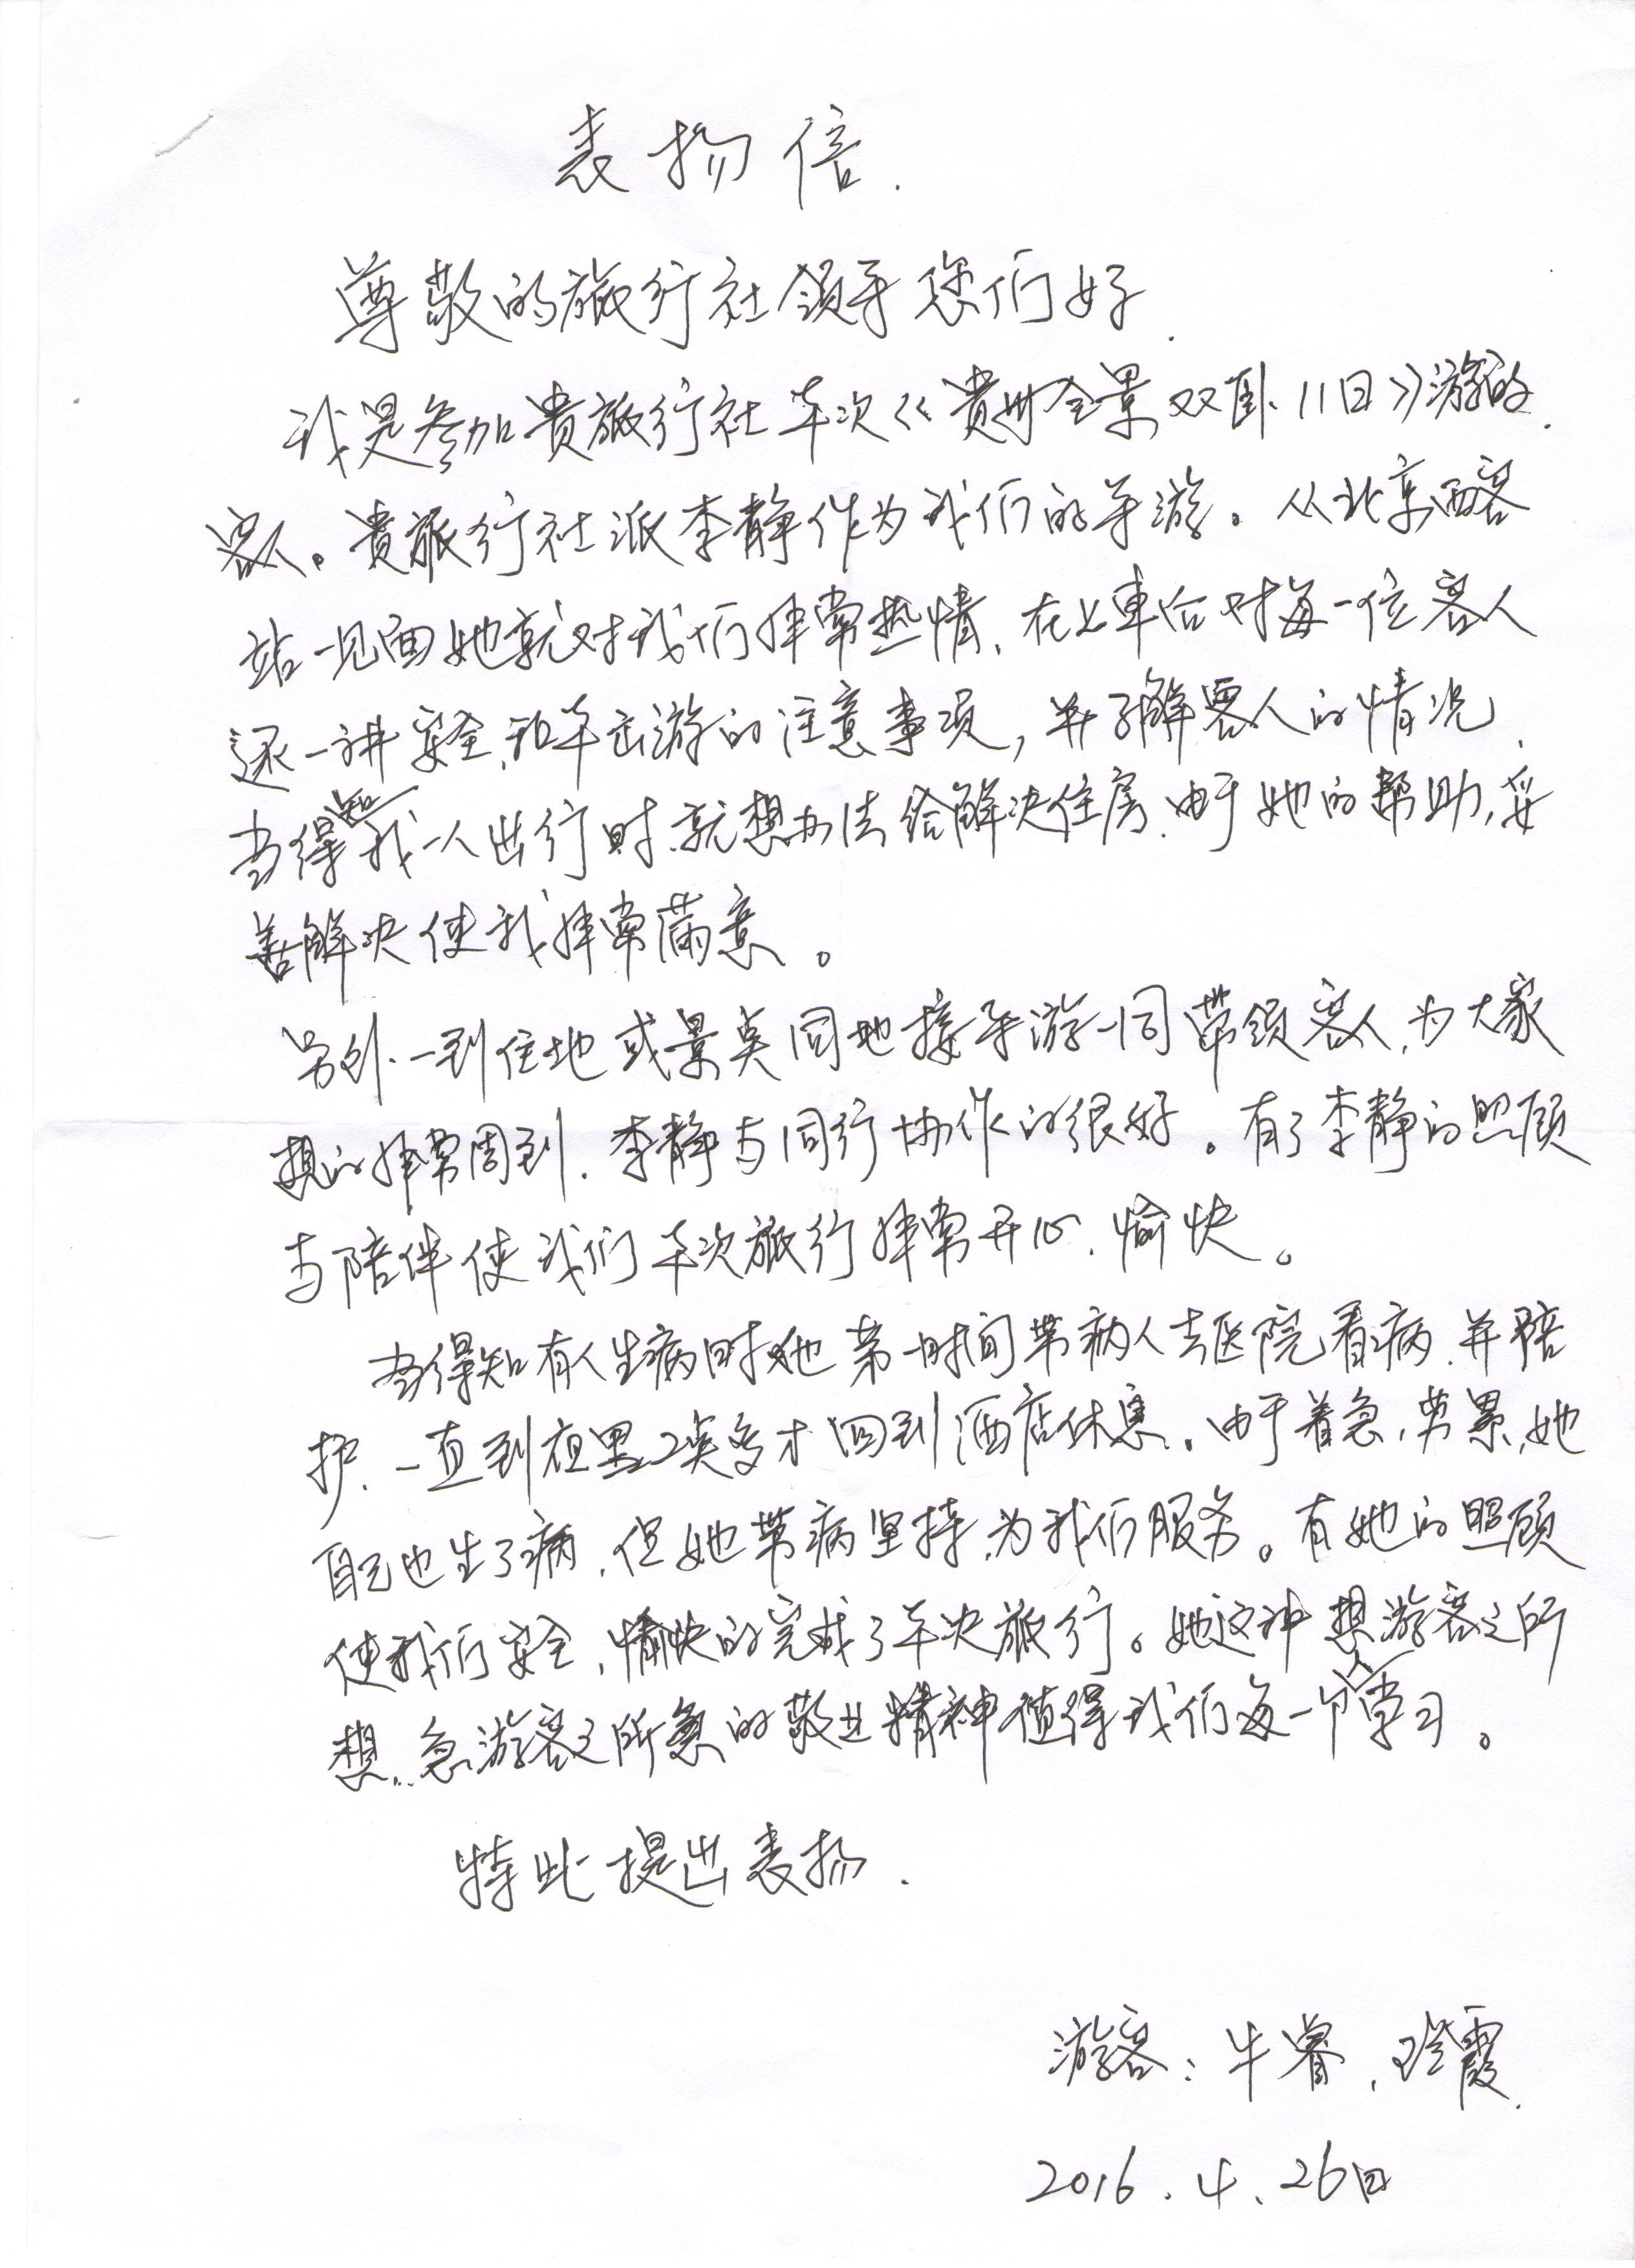 表扬信.
尊敬的旅行社领导您们好.
我是参加贵旅行社本次《贵州全景双卧11日》游的
客人。贵旅行社派李静作为我们的导游。从北京西客
站一见面她就对我们非常热情、在上車后对每一位客人
逐一讲安全、和本击游的注意事项,并了解客人的情况、
当得知我一人出行时.就想办法给解决住房.由于她的帮助,妥
善解决使我非常满意。
另外.一到住地或景点同地接导游一同带领客人,为大家
想的非常周到.李静与同行协作的很好。有了李静的照顾
与陪伴使我们本次旅行非常开心、愉快。
当得知有人生病时她第一时间带病人去医院看病.并陪
护.一直到夜里2点多才回到酒店休息。由于着急,劳累,她
自己也生了病.但她带病坚持为我们服务。有她的照顾
使我们安全,愉快的完成了本次旅行。她这种想游客之所
想.急游客之所急的敬业精神值得我们每一个人学习。
特此提出表扬.
游客:牛睿、霞.
2016.4.26日